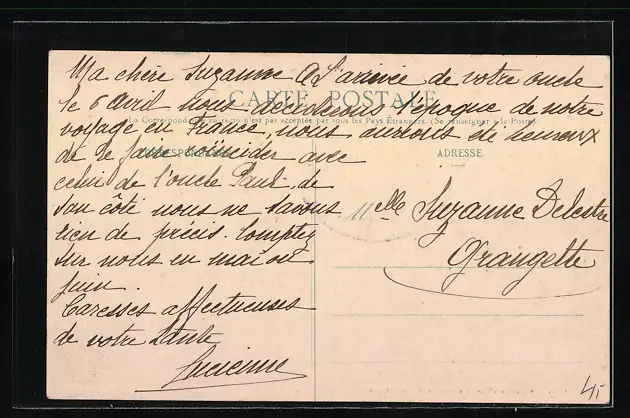 Ma chère Suzanne A l'arrivée de votre oncle
le 6 avril nous déciderons l'époque de notre
CARTE POSTALE
La Correspondance au recto n'est pas acceptée par tous les Pays Étrangers. (Se renseigner à la Poste)
voyage en France, nous aurions été heureux
de le faire coïncider avec
CORRESPONDANCE
ADRESSE
celui de l'oncle Paul, de
son côté nous ne savons
rien de précis. Comptez
sur nous en mai ou
juin.
Caresses affectueuses
de votre tante
Lucienne
Melle Suzanne Delestre
Grangette